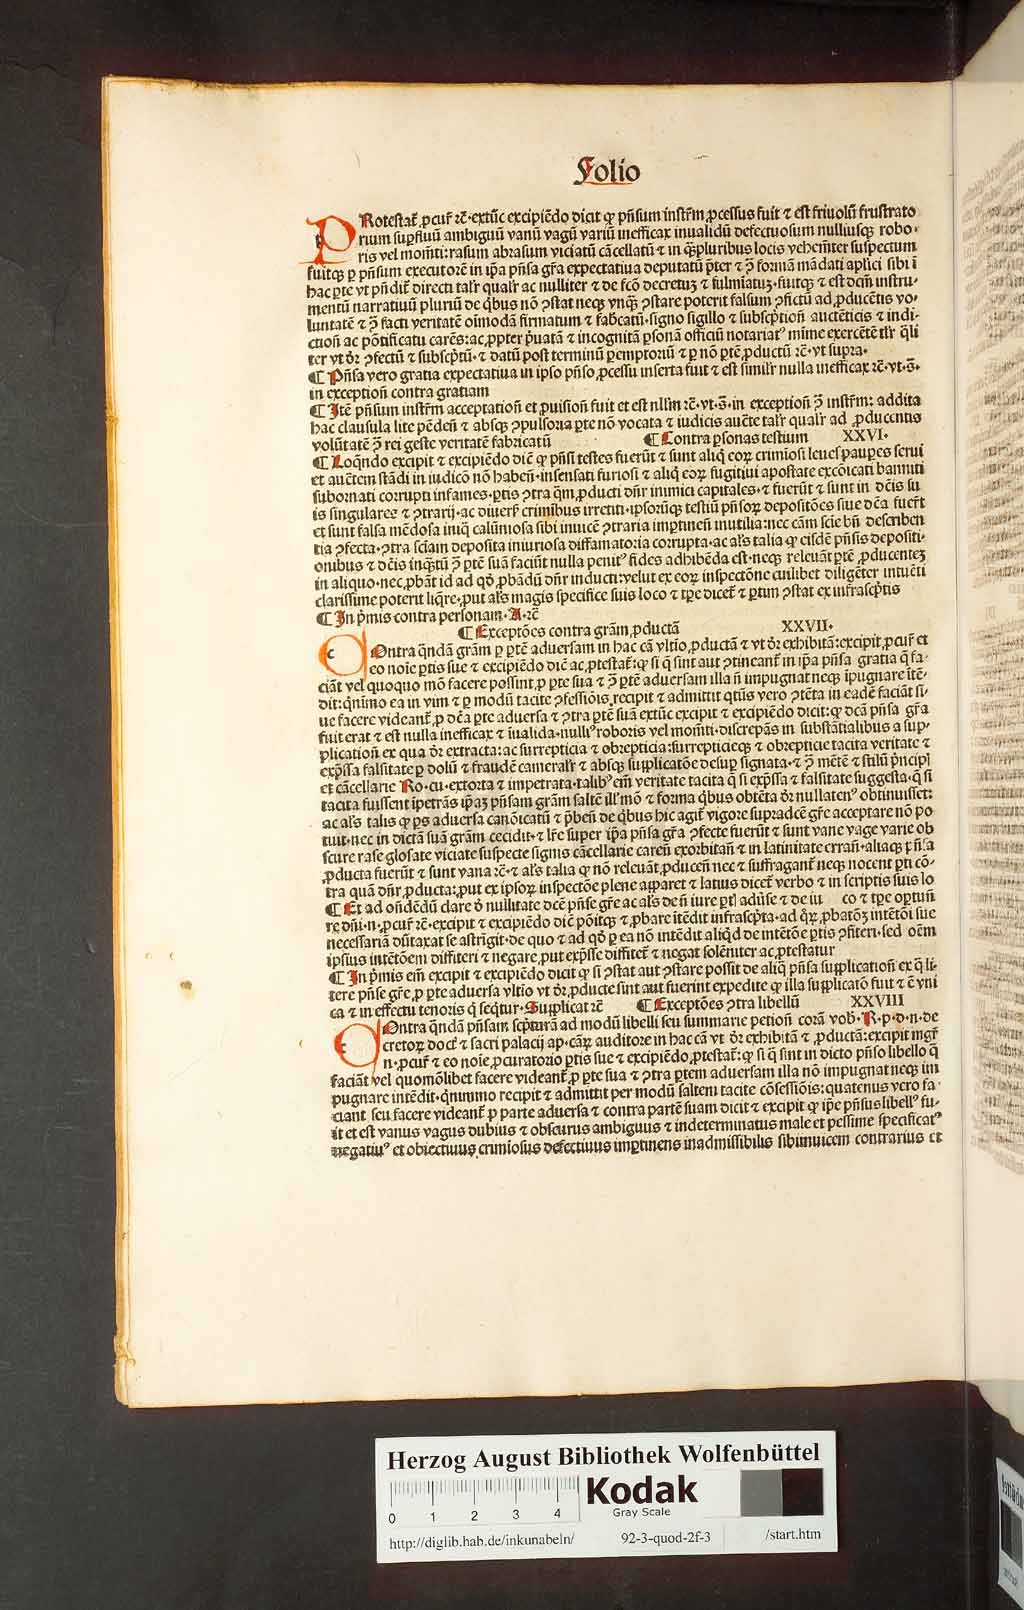 Folio
PRotestat̄ ꝓcur̄ ⁊c̄·extūc excipiēdo dicit ꝙ pñsum instr̄m ꝓcessus fuit ⁊ est friuolū frustrato
rium supfluū ambiguū vanū vagū variū inefficax inualidū defectuosum nulliusqꝫ robo·
ris vel momēti: rasum abrasum viciatū cācellatū ⁊ in qͣꝫpluribus locis vehemēter suspectum
fuitqꝫ ꝑ pñsum executorē in ip̄a pñsa gr̄a expectatiua deputatū p̄ter ⁊ ꝯ̄ formā mādati apl̄ici sibi ī
hac ꝑte vt p̄ndit̄ directi tal'r qual'r ac nulliter ⁊ de fc̄o decretuꝫ ⁊ fulmiatuꝫ·fuitqꝫ ⁊ est dc̄m instru-
mentū narratiuū pluriū de qͥbus nō ꝯstat neqꝫ vnqͣꝫ ꝯstare poterit falsum ꝯfictū ad ꝓducētis vo-
luntatē ⁊ ꝯ̄ facti veritatē oīmodā firmatum ⁊ fab͛catū·signo sigillo ⁊ subscp̄tioñ auctēticis ⁊ indi-
ctioñ ac pōtificatu carēs: ac ꝓpter p̄uatā ⁊ incognitā ꝑsonā officiū notariatꝰ mīme exercētē tl'r qͣli
ter vt ꝺr̄ ꝯfectū ⁊ subscp̄tū·⁊ datū post terminū ꝑemptoriū ⁊ ꝑ nō ꝑtē ꝓductū ⁊c̄·vt supra·
¶ Pñsa vero gratia expectatiua in ipso pñso ꝓcessu inserta fuit ⁊ est simil'r nulla inefficax ⁊c̄·vt·s̄·
in exceptioñ contra gratiam
¶ Itē pñsum instr̄m acceptatioñ et ꝓuisioñ fuit et est nll'm ⁊c̄·vt·s̄·in exceptioñ ꝯ̄ instr̄m: addita
hac clausula lite pēdeñ ⁊ absqꝫ ꝯpulsoria ꝑte nō vocata ⁊ iudicis auc̄te tal'r qual'r ad ꝓducentis
volūtatē ꝯ̄ rei geste veritatē fabricatū ¶ Contra ꝑsonas testium XXVI·
¶ Loqͣndo excipit ⁊ excipiēdo diē ꝙ pñsi testes fuerūt ⁊ sunt aliqͥ eoꝝ crimiosi leues pauꝑes serui
et auc̄tem stādi in iudicō nō habeñ·insensati furiosi ⁊ aliqͥ eoꝝ fugitiui apostate excōicati banniti
subornati corrupti infames·ꝑtis ꝯtra qͣm ꝓducti dn̄r inimici capitales·⁊ fuerūt ⁊ sunt in dc̄is su
is singulares ⁊ ꝯtrarij·ac diuers̄ criminibus irretiti·ipsorūqꝫ testiū pñsoꝝ depositōes siue dc̄a fuer̄t
et sunt falsa mēdosa iniqͣ calūmiosa sibi inuicē ꝯtraria imꝑtineñ inutilia: nec cām scie bñ describen
tia ꝯfecta·ꝯtra sc̄iam deposita iniuriosa diffamatoria corrupta·ac al's talia ꝙ eisdē pñsis depositi-
onibus ⁊ dc̄is inqͣꝫtū ꝯ̄ ꝑtē suā faciūt nulla penitꝰ fides adhibēda est·neqꝫ releuāt ꝑtē ꝓducenteꝫ
in aliquo·nec ꝓbāt id ad qͦ ꝓbādū dn̄r inducti: velut ex eoꝝ inspectōne cuilibet diligēter intuēti
clarissime poterit liqͥre·ꝓut al's magis specifice suis loco ⁊ tꝑe dicet̄ ⁊ ꝑtim ꝯstat ex infrascp̄tis
¶ In p̄mis contra personam·A·⁊c̄
¶ Exceptōes contra gr̄am ꝓductā XXVII·
COntra qͣndā gr̄am ꝑ ꝑtē aduersam in hac cā vltīo ꝓductā ⁊ vt ꝺr̄ exhibitā: excipit ꝓcur̄ et
eo noīe ꝑtis sue ⁊ excipiēdo diē ac ꝓtestat̄: ꝙ si qͣ sint aut ꝯtineant̄ in ip̄a pñsa gratia qͣ fa-
ciāt vel quoquo mō facere possint ꝓ ꝑte sua ⁊ ꝯ̄ ꝑtē aduersam illa ñ impugnat neqꝫ īpugnare ītē-
dit: qͥnimo ea in vim ⁊ ꝑ modū tacite ꝯfessiōis recipit ⁊ admittit qͣtūs vero ꝯtēta in eadē faciāt si-
ue facere videant̄ ꝓ dc̄a ꝑte aduersa ⁊ ꝯtra ꝑtē suā extūc excipit ⁊ excipiēdo dicit: ꝙ dc̄a pñsa gr̄a
fuit erat ⁊ est nulla inefficax ⁊ īualida·nulliꝰ roboris vel momēti·discrepās in substātialibus a sup-
plicatioñ ex qua ꝺr̄ extracta: ac surrepticia ⁊ obrepticia: surrepticieqꝫ ⁊ obrepticie tacita veritate ⁊
exp̄ssa falsitate ꝑ dolū ⁊ fraudē cameral'r ⁊ absqꝫ supplicatōe desuꝑ signata·⁊ ꝯ̄ mētē ⁊ stilū p̄ncipi
et cācellarie Ro·cu·extorta ⁊ impetrata·talibꝰ em̄ veritate tacita qͣ si exp̄ssa ⁊ falsitate suggesta·qͣ si
tacita fuissent īpetrās ip̄aꝫ pñsam gr̄am saltē ill'mō ⁊ forma qͥbus obtēta ꝺr̄ nullatenꝰ obtinuisset:
ac al's talis ꝙ ꝑs aduersa canōicatū ⁊ p̄beñ de qͥbus hic agit̄ vigore supradc̄e gr̄e acceptare nō po
tuit·nec in dictā suā gr̄am cecidit·⁊ lr̄e super ip̄a pñsa gr̄a ꝯfecte fuerūt ⁊ sunt vane vage varie ob
scure rase glosate viciate suspecte signis cācellarie careñ exorbitañ ⁊ in latinitate errañ·aliaqꝫ pñsa
ꝓducta fuerūt ⁊ sunt vana ⁊c̄·⁊ al's talia ꝙ nō releuāt ꝓduceñ nec ⁊ suffragant̄ neqꝫ nocent ꝑti cō-
tra quā dn̄r ꝓducta: ꝓut ex ipsoꝝ inspectōe plene apparet ⁊ latius dicet̄ verbo ⁊ in scriptis suis lo
¶ Et ad ondēdū clare ꝺ nullitate dc̄e pñse gr̄e ac al's de ñ iure ꝑti aduīse ⁊ de iu co ⁊ tꝑe oꝑtuñ
re dn̄i·n·ꝓcur̄ ⁊c̄·excipit ⁊ excipiēdo diē pōitqꝫ ⁊ ꝓbare ītēdit infrascp̄ta·ad qͣꝝ ꝓbatōꝫ intētōi sue
necessariā dūtaxat se astrīgit·de quo ⁊ ad qͦ ꝑ ea nō intēdit aliqͥd de intētōe ꝑtis ꝯfiteri·sed oēm
ipsius intētōem diffiteri ⁊ negare·put exp̄sse diffitet̄ ⁊ negat solēniter ac ꝓtestatur
¶ In p̄mis em̄ excipit ⁊ excipiēdo dicit ꝙ si ꝯstat aut ꝯstare possit de aliqͣ pñsa supplicatioñ ex qͣ li-
tere pñse gr̄e ꝓ ꝑte aduersa vltīo vt ꝺr̄ ꝓducte sint aut fuerint expedite ꝙ illa supplicatō fuit ⁊ ē vni
ca ⁊ in effectu tenoris qͥ seqͥtur·Supplicat ⁊c̄ ¶ Exceptōes ꝯtra libellū XXVIII
COntra qͣndā pñsam scp̄turā ad modū libelli seu summarie petioñ corā vobꝰ R·p·d·n·de
cretoꝝ doct̄ ⁊ sacri palacij ap·cāꝝ auditore in hac cā vt ꝺr̄ exhibitā ⁊ ꝓductā: excipit mgr̄
n·ꝓcur̄ ⁊ eo noīe ꝓcuratorio ꝑtis sue ⁊ excipiēdo ꝓtestat̄: ꝙ si qͣ sint in dicto pñso libello qͣ
faciāt vel quomōlibet facere videant̄ ꝓ ꝑte sua ⁊ ꝯtra ꝑtem aduersam illa nō impugnat neqꝫ im
pugnare intēdit·qͥnimmo recipit ⁊ admittit per modū saltem tacite cōfessiōis: quatenus vero fa
ciant seu facere videant̄ ꝓ parte aduersa ⁊ contra partē suam dicit ⁊ excipit ꝙ ip̄e pñsus libellꝰ fu-
it et est vanus vagus dubius ⁊ obscurus ambiguus ⁊ indeterminatus male et pessime specificatꝰ
negatiuꝰ et obiectiuus crimiosus defectiuus imꝑtinens inadmissibilis sibiinuicem contrarius et
Herzog August Bibliothek Wolfenbüttel
0 1 2 3 4
Kodak
Gray Scale
http://diglib.hab.de/inkunabeln/ 92-3-quod-2f-3 /start.htm